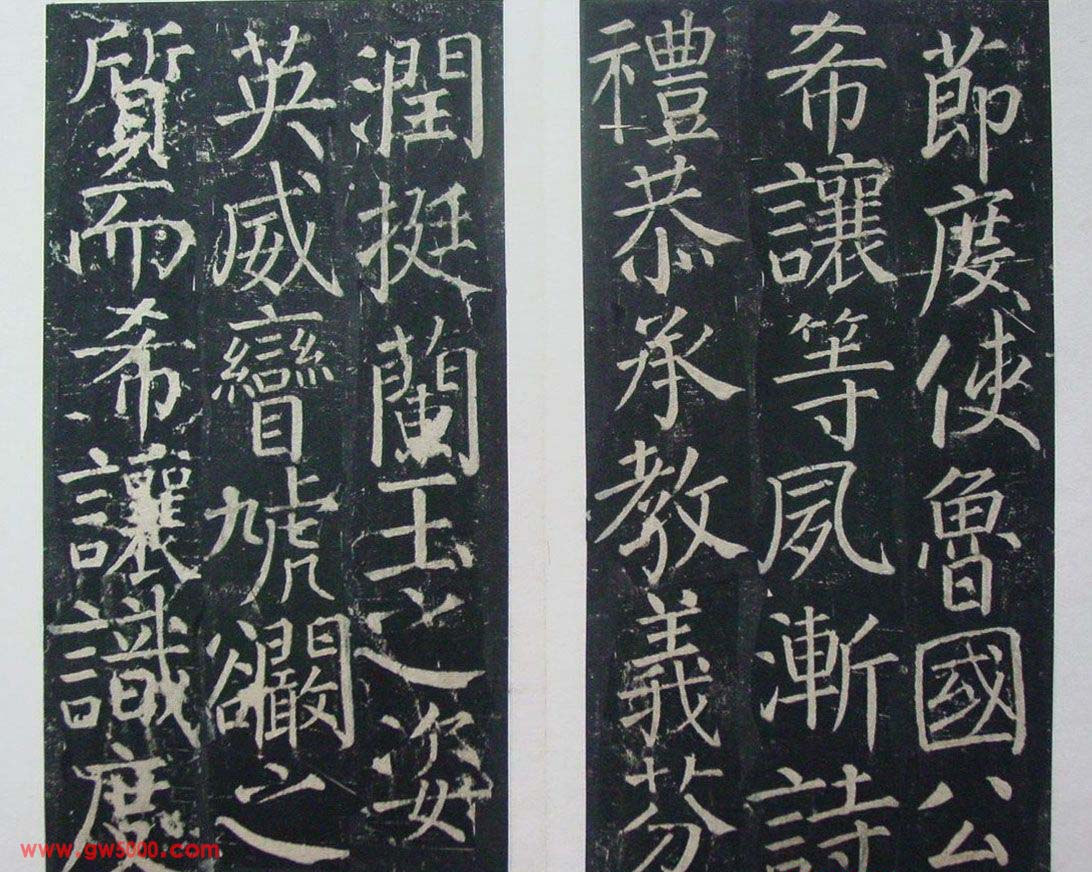 莭度使魯國公
希讓等夙漸詩
禮恭承教義芬
潤挺蘭玉之姿
英威矕虓之
質而希讓識度
www.gw5000.com